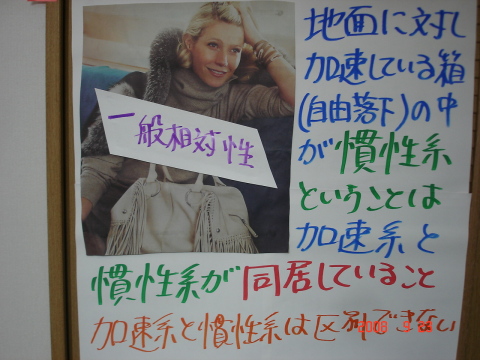 地面に対し
加速している箱
(自由落下)の中
が慣性系
ということは
加速系と
慣性系が同居していること
加速系と慣性系は区別できない
一般相対性